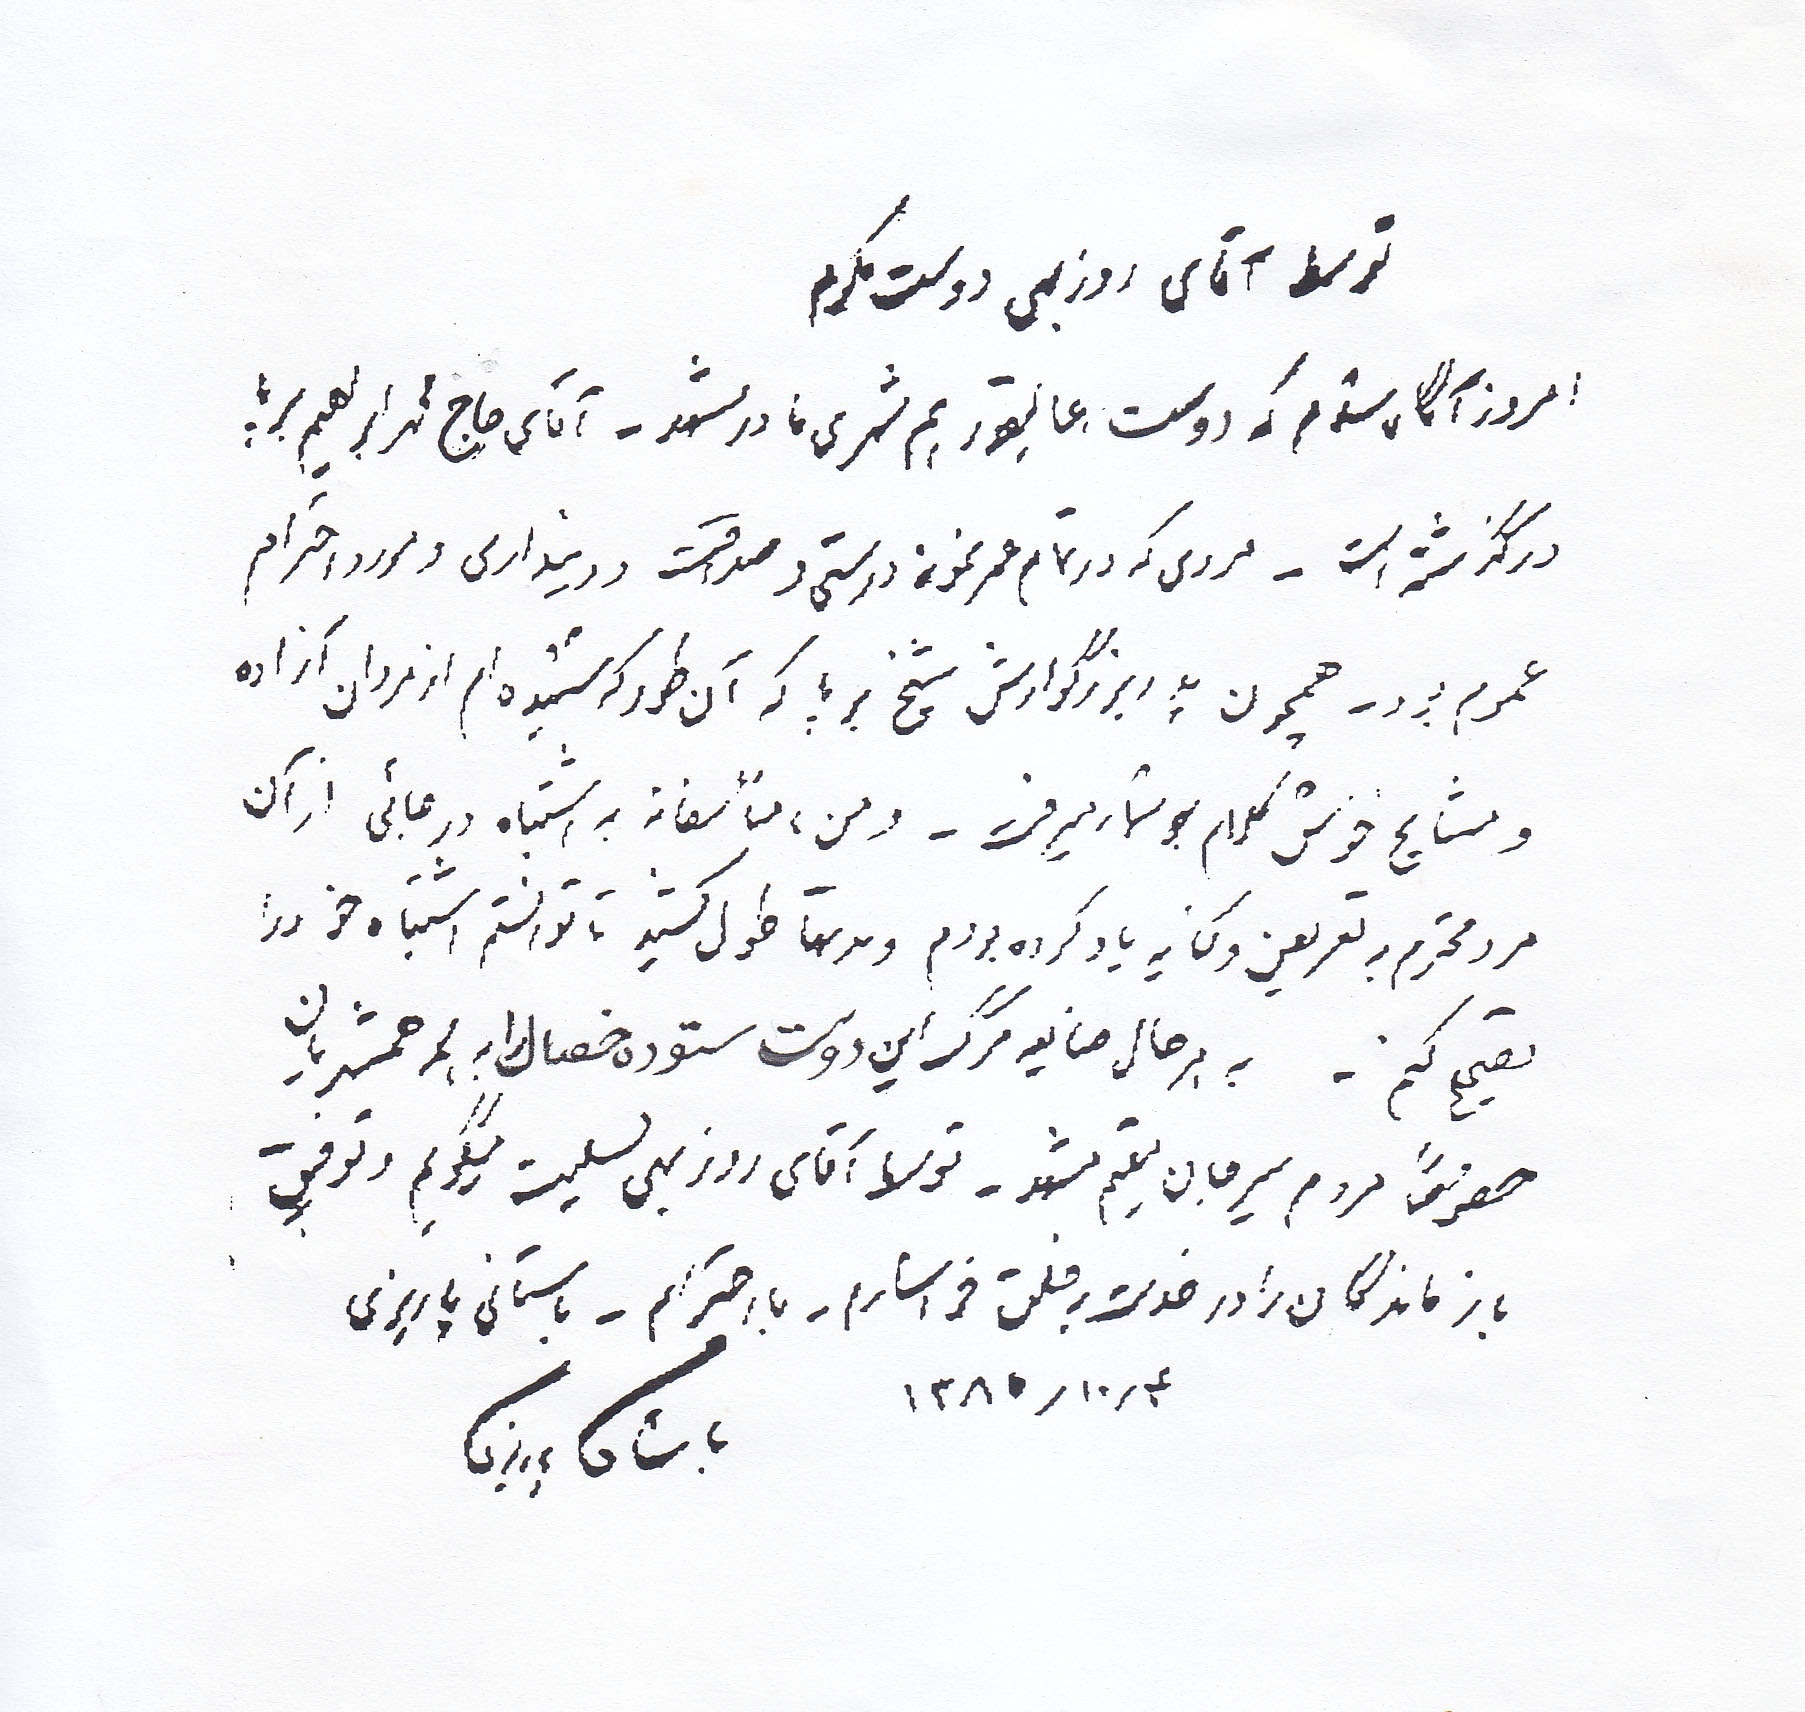 توسط آقای روزبهی دوست مکرم
امروز آگاه شدم که دوست عالیقدر هم شهری ما در مشهد - آقای حاج محمد ابراهیم برپا
درگذشته است - مردی که در تمام عمر نمونه درستی و صداقت و دینداری و مورد احترام
عموم بود - همچون پدر بزرگوارش شیخ برپا که آن طور که شنیده ام از مردان آزاده
و مشایخ خوش کلام بشمار میرفت - و من متأسفانه به اشتباه در جائی از آن
مرد محترم به تعریض و کنایه یاد کرده بودم و مدتها طول کشید تا توانستم اشتباه خود را
تصحیح کنم - به هر حال ضایعه مرگ این دوست ستوده خصال را به همه همشهریان
خصوصاً مردم سیرجان مقیم مشهد - توسط آقای روزبهی تسلیت میگویم و توفیق
بازماندگان را در خدمت به خلق خواستارم - با احترام - باستانی پاریزی
۱۳۸۵/۱۰/۴
باستانی پاریزی